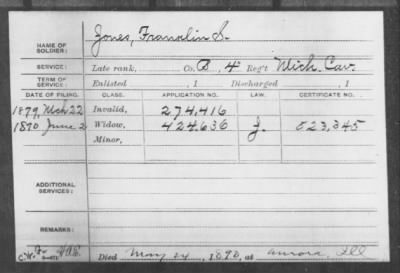 NAME OF SOLDIER: Jones, Franklin S.
SERVICE: Late rank, Co. B, 4" Reg't Mich. Cav.
TERM OF SERVICE: Enlisted , 1 Discharged , 1
DATE OF FILING. CLASS. APPLICATION NO. LAW. CERTIFICATE NO.
1879, Mch 22 Invalid, 274,416
1890 June 2 Widow, 424,636 J. 523,345
Minor,
ADDITIONAL SERVICES:
REMARKS:
Died May 24, 1890, at Aurora, Ill